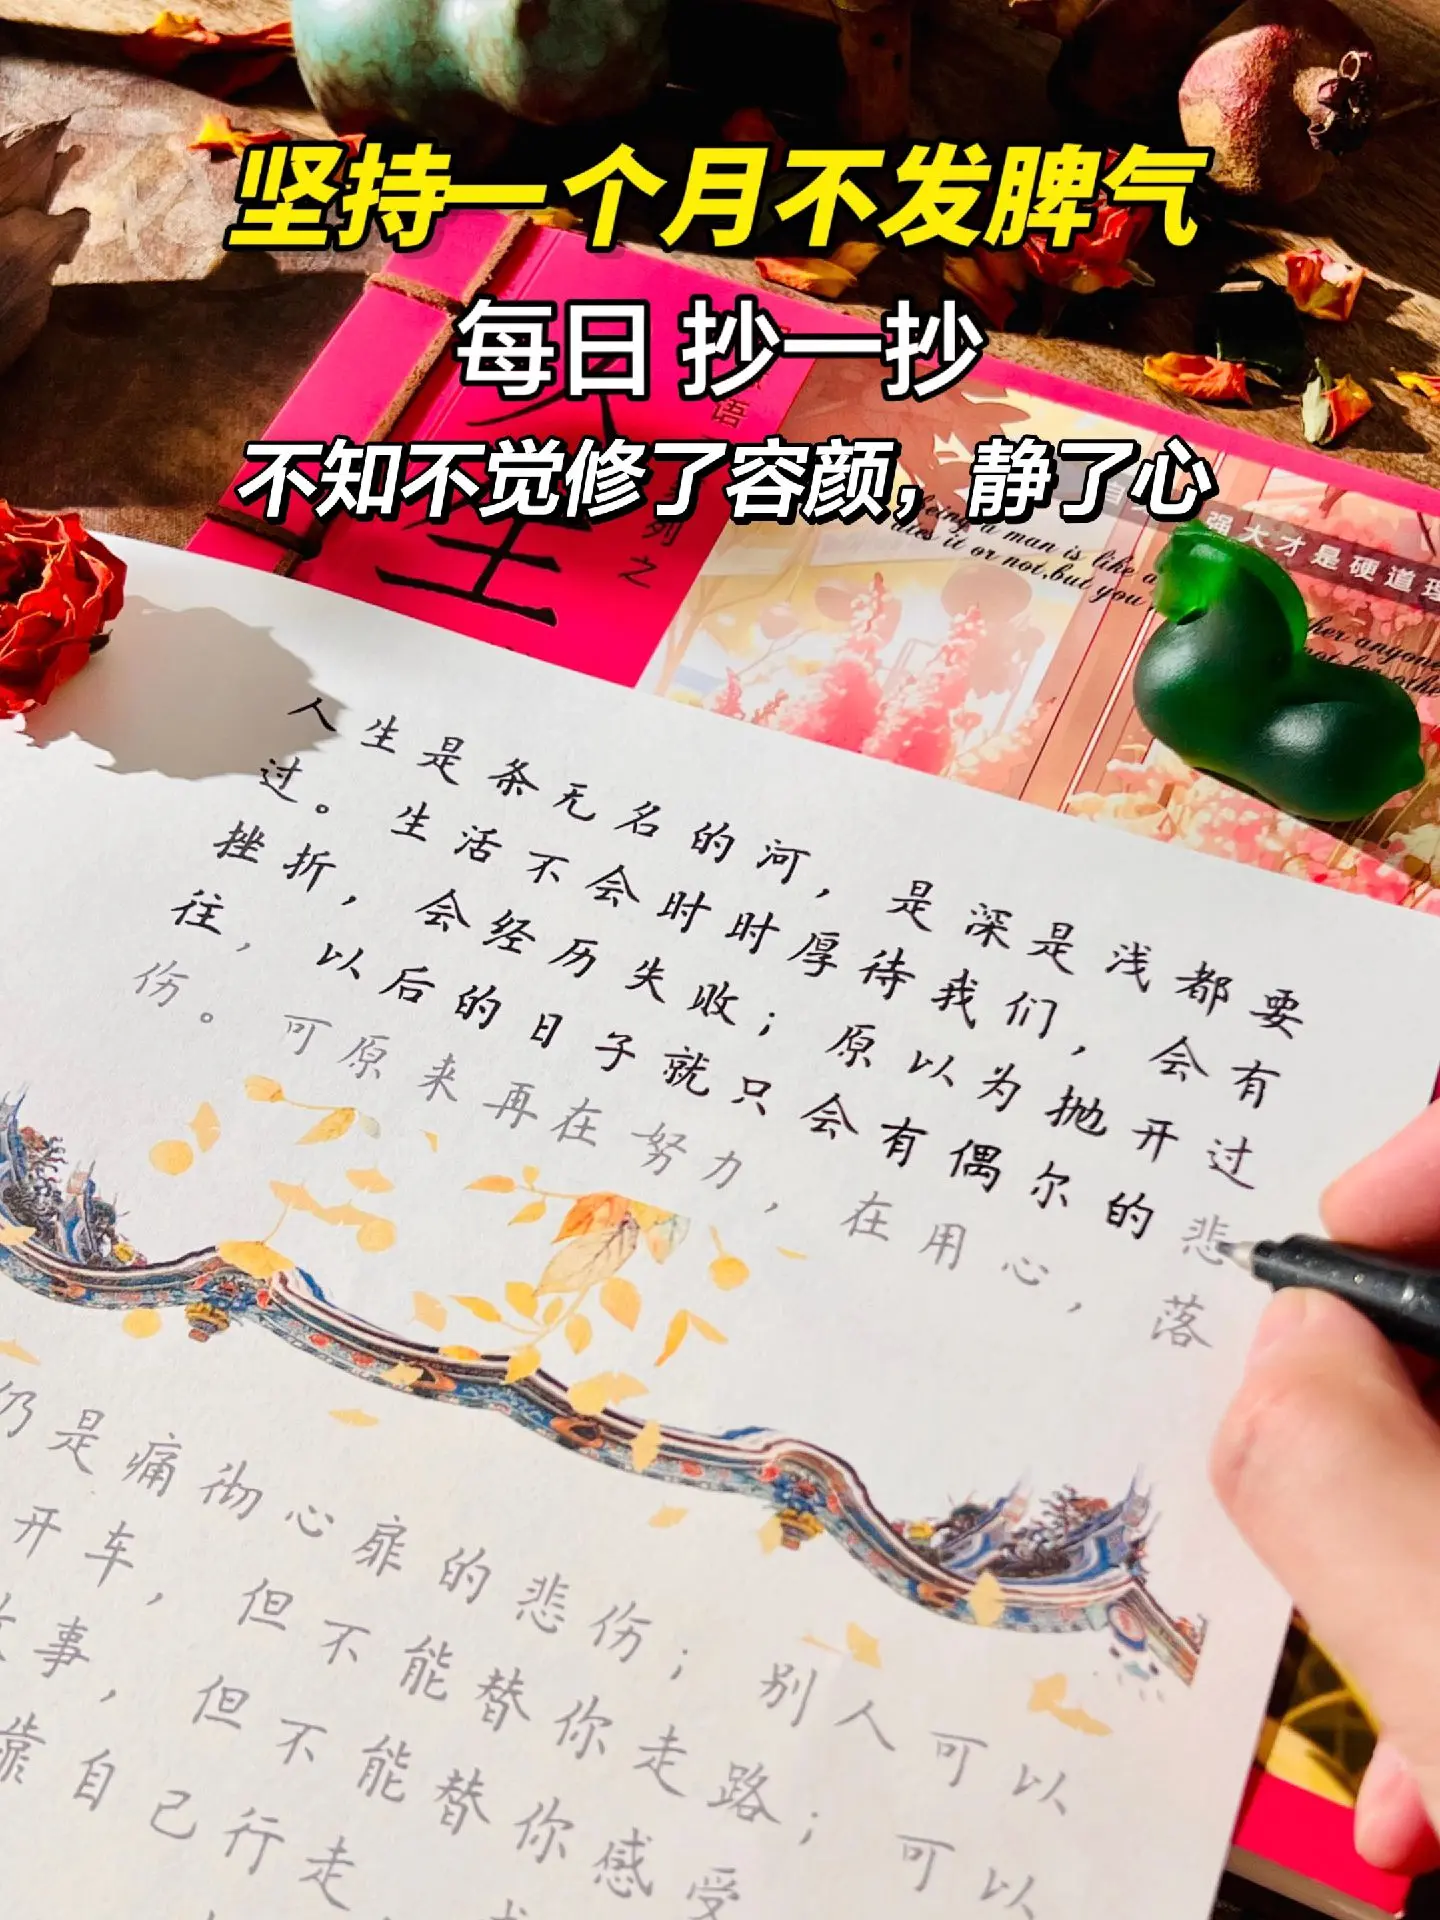 坚持一个月不发脾气
每日 抄一抄
不知不觉修了容颜，静了心
语
人生
列之
being a man is like a
it or not,but you
强大才是硬道理
人生是条无名的河，是深是浅都要
过。生活不会时时厚待我们，会有
挫折，会经历失败；原以为抛开过
往，以后的日子就只会有偶尔的悲
伤。可原来再在努力，在用心，落
仍是痛彻心扉的悲伤；别人可以
开车，但不能替你走路；可以
事，但不能替你感受
靠自己行走，